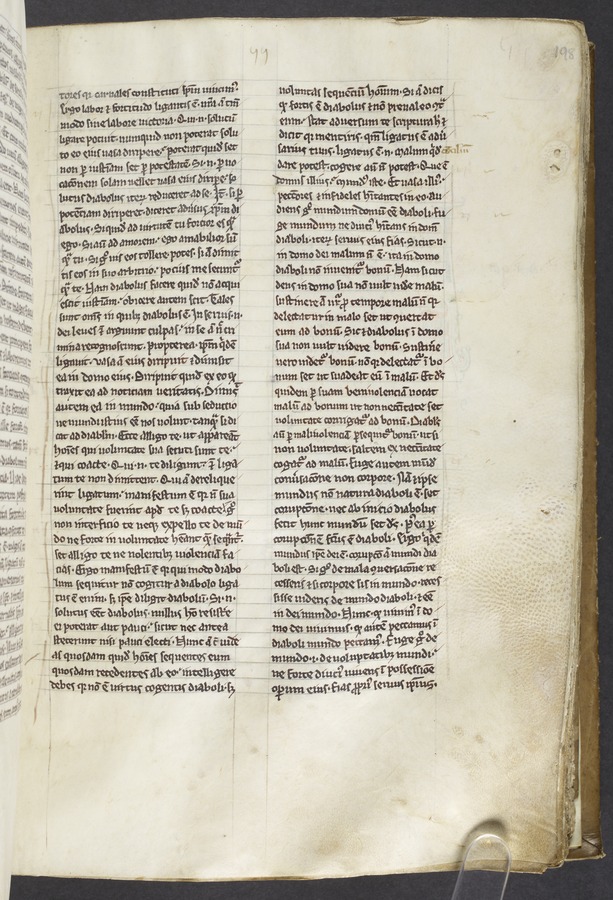 99
198
tores qr̄ carnales constituti sp̄m uincim̄
Ergo labor & fortitudo ligantis ē. una ā tm̄
modo sine labore uictoria. Q. m. n. solutū
ligare potuit. numquid non poterat solu
to eo eius uasa diripere. poterat quid set
non ꝑ iustitiam set ꝑ potestatē. Si. n. ꝑ uo
cationem solam uellet uasa eius diripe. so
lutus diabolus iterū reduceret ad se.
potentiam diriperet. diceret aduersus xp̄m di
abolus. Si quid ad uirtutē tu fortior es qͣ
ego. Si aū ad amorem. ego amabilior sū
qͣ tu. Si gͦ uis eos tollere potes. si ā dimit
tis eos in suo arbitrio. pocius me secuntͬ
qͣ te. Nam diabolus facere quid nō acqui
escit iustitiam. obicere autem scit. Tales
sunt om̄s in quibꝫ diabolus ē. In seruis. n.
dei leues & arguunt culpas. in se ā n̄ cri
mina recognoscunt. propterea. xp̄m qͥdē
ligauit. uasa ā eius diripuit & dimisit
ea in domo eius. Diripuit quid ex eo qͣ
traxit ea ad noticiam ueritatis. Dimisit
autem ea in mundo. quia sub seductio
ne mundi istius ēē nos uoluit. tanqͣ si di
cat ad diabl̄m. Ecce alligo te. ut appareāt
hoīes qui uoluntate sua serui sunt te.
& qui coacte. Qui. n. te diligunt. & liga
tum te non dimittent. Qui ā derelique
rint ligatum. manifestum ē qͣ n̄ sua
uoluntate fuerint apd̄ te sꝫ coacte. gͦ
non interficio te neqꝫ expello te de mū
do ne forte inuoluntate
set alligo te ne nolentibꝫ uiolencia fa
cias. Ergo manifestū ē qr̄ qui modo diabo
lum sequitur nō cogitur a diabolo liga
tus ē enim. sꝫ ipe diligit diabolū. Si. n.
solutus eēt diabolus. nullus hō resiste
ei poterat aut pauci. sicut nec antea
steterunt nisi pauci electi. Nunc ā cū uide
as quosdam quid hoīes sequentes eum
quosdam recedentes ab eo. intelligere
debes qr̄ nō ē uirtus cogentis diaboli. sꝫ
uoluntas sequentiū hoīum. Si ā dicis
qͣ fortis ē diabolus & nō preualeo cōt̄
eum. stat aduersum te scriptura &
dicit qr̄ mentiris. qm̄ ligatus ē adu
sarius tuus. ligatus ē. n. malum qͥdē
dare potest. cogere aū n̄ potest. Que ē
domus illius. mund' iste. Et uasa illi'.
peccatores & infideles hītantes in eo. au
diens gͦ mundum domū eē diaboli. fu
ge mundum ne diuci' hītans in domū
diaboli. iterū seruus eius fias. Sicut. n.
in domo dei malum n̄ ē. ita in domo
diaboli nō inuenit' bonū. Nam sicut
deus in domo sua nō uult uide malū.
sustinere ā utr̄ ꝑ tempore malū n̄ qr̄
delectatur in malo set ut cōuertat
eum ad bonū. Sic & diabolus ī domo
sua non uult uidere bonū. Sustine
uero uidetͬ bonū. nō qr̄ delectatͬ ī bo
num set ut suadeat eū ī malū. Et ds̄
quidem ꝑ suam beniuolencia uocat
malū ad bonum ut non necessitate set
uoluntate corrigatͬ ad bonū. Diabl's
aū ꝑ maliuolencia ꝑsequitͬ bonū. ut si
non uoluntate. saltem ex necessitate
cogatͬ ad malū. Fuge autem mūdū
conuersatione non corpore. Nā & ipse
mundus nō natura diaboli ē. set
corruptione. nec ab inicio diabolus
fecit hunc mundū set ds̄. postea ꝑ
corruptionē fc̄us ē diaboli. Ergo qͥdē
mundus ipe dei ē. corruptō ā mundi dia
boli est. Si gͦ de mala cōuersatione re
cesseris & si corpore sis in mundo. reces
sisse uideris de mundo diaboli. & ēē
in dei mundo. Nunc. qͣ uiuim' ī do
mo dei uiuimus. qͣ autē peccamus ī
diaboli mundo peccam'. Fuge gͦ de
mundo. i. de uoluptatibꝫ mundi.
ne forte diuci' uiuens ī possessiōe
operum eius. fias pp̄ri' seruus ipius.